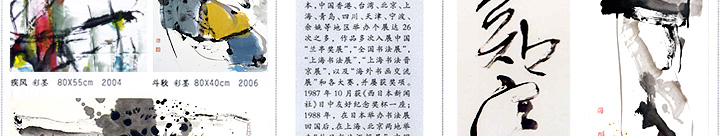 疾风 彩墨 80X55cm 2004
斗秋 彩墨 80X40cm 2006
本,中国香港、台湾、北京、上
海、青岛、四川、天津、宁波、
余姚等地区举办个展达26
次之多。作品多次入展中国
“兰亭奖展”,“全国书法展”,
“上海书法展”,“上海书法晋
京展”,以及“海外书画交流
展”和各大赛,并屡获奖项。
1987年10月获《西日本新闻
社》日中友好纪念奖杯一座;
1988年,在日本举办书法展
回国后,在上海、北京两地举